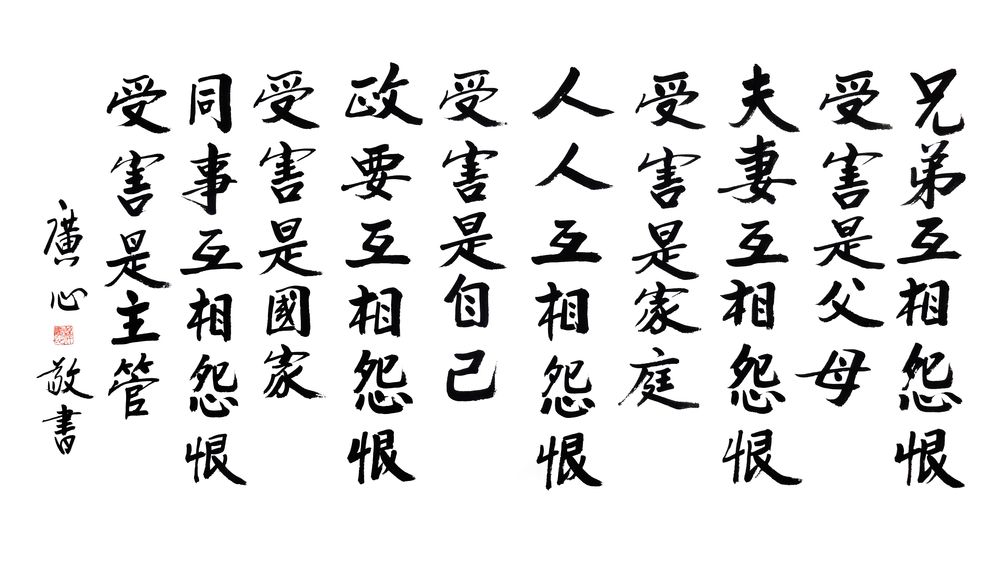 兄弟互相怨恨
受害是父母
夫妻互相怨恨
受害是家庭
人人互相怨恨
受害是自己
政要互相怨恨
受害是國家
同事互相怨恨
受害是主管
廣心 敬書